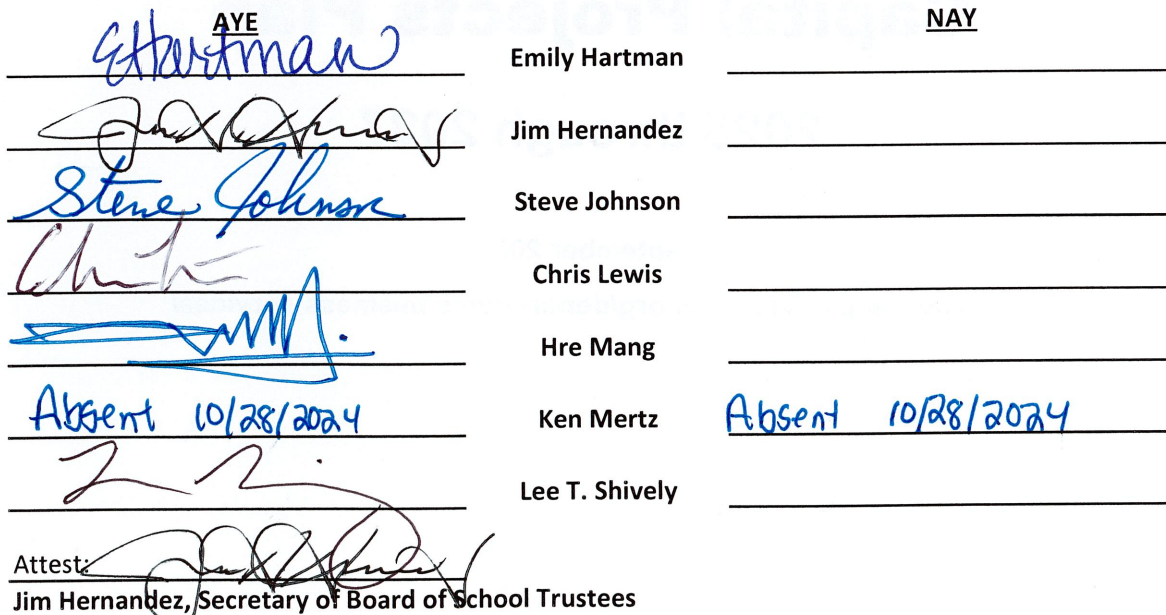 AYE NAY
EHartman Emily Hartman
Jim Hernandez
Steve Johnson Steve Johnson
Chris Lewis
Hre Mang
Absent 10/28/2024 Ken Mertz Absent 10/28/2024
Lee T. Shively
Attest:
Jim Hernandez, Secretary of Board of School Trustees